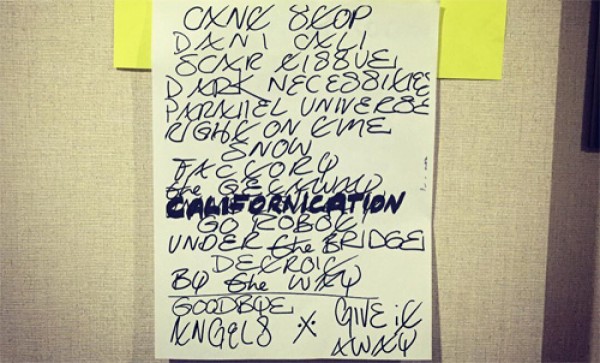 CANT STOP
DANI CALI
SCAR TISSUE
DARK NECESSITIES
PARAllEL UNIVERSE
RIGHT ON TIME
SNOW
FACTORY
the GETAWAY
CALIFORNICATION
GO ROBOT
UNDER the BRIDGE
DETROIT
BY the WAY
GOODBYE
ANGELS
GIVE iT
AWAY